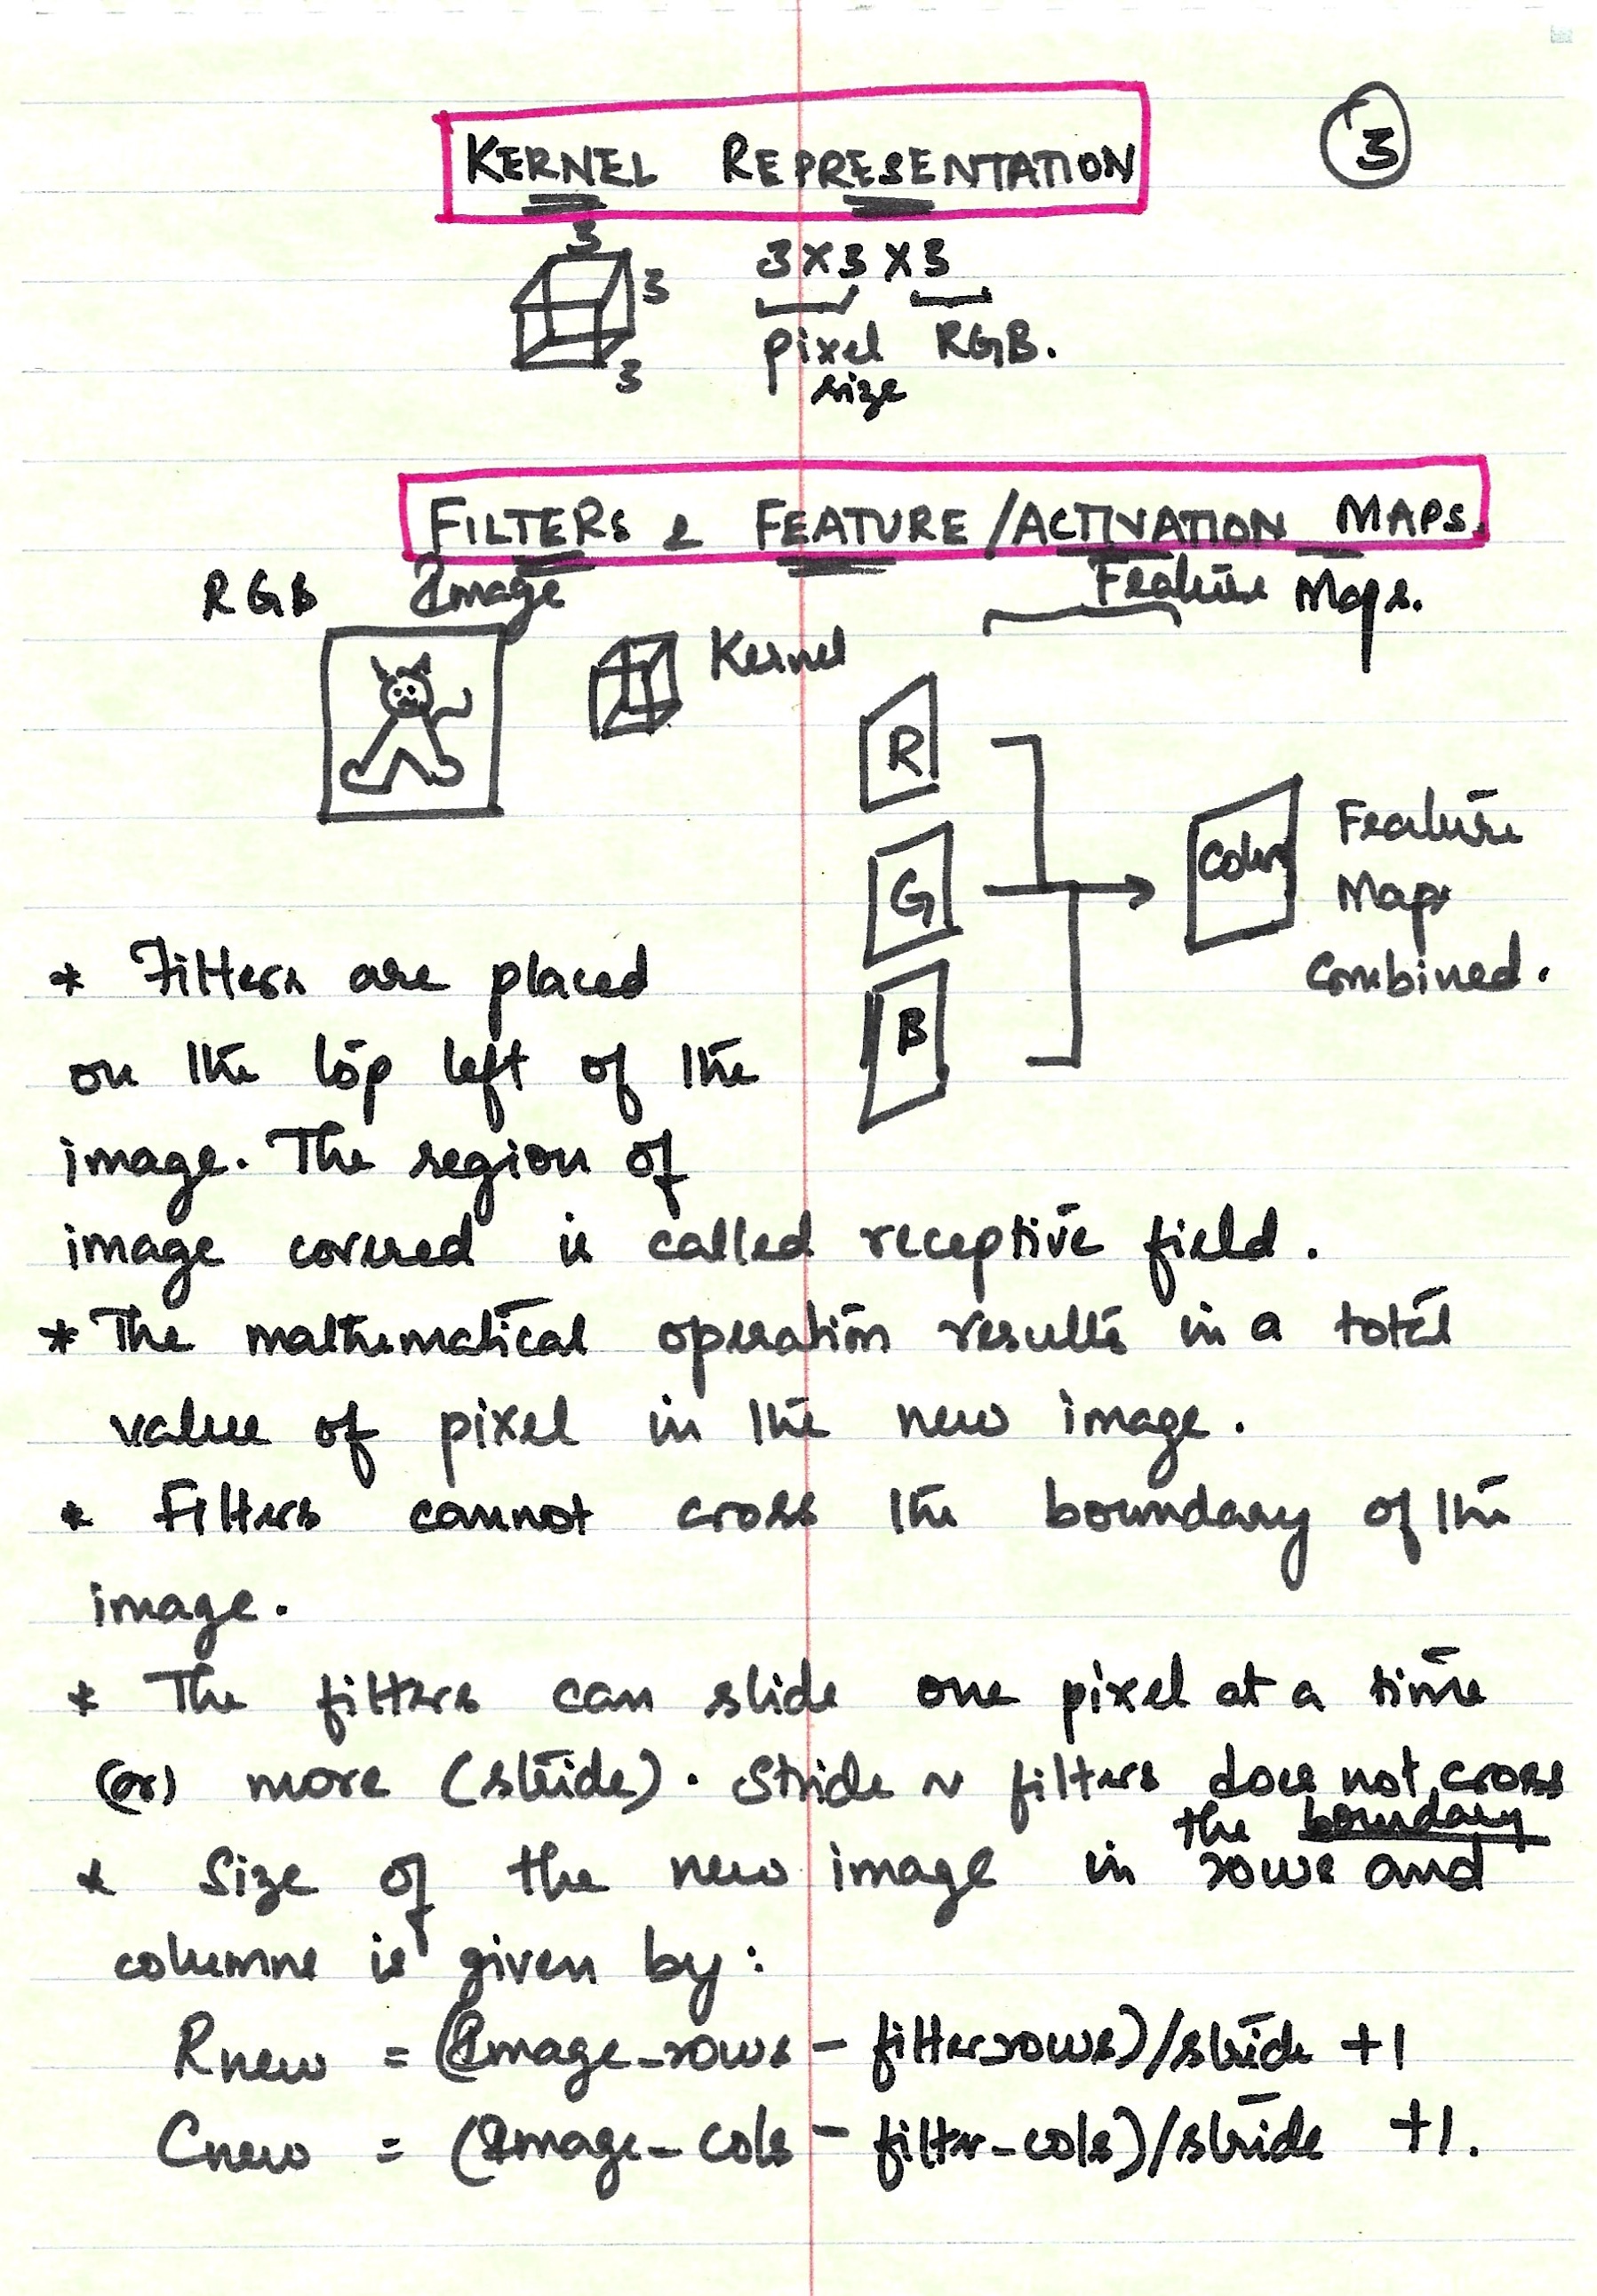 KERNEL REPRESENTATION
3
3
3
3
3×3×3
pixel RGB.
size
FILTERS & FEATURE/ACTIVATION MAPS.
RGB Image
Feature Maps.
Kernel
R
G
B
Feature
Maps
Combined.
* Filters are placed
on the top left of the
image. The region of
image covered is called receptive field.
* The mathematical operation results in a total
value of pixel in the new image.
* Filters cannot cross the boundary of the
image.
* The filters can slide one pixel at a time
(or) more (stride). Stride ~ filters does not cross
the boundary
* Size of the new image in rows and
columns is given by:
Rnew = (Image_rows - filter_rows)/stride +1
Cnew = (Image_cols - filter_cols)/stride +1.